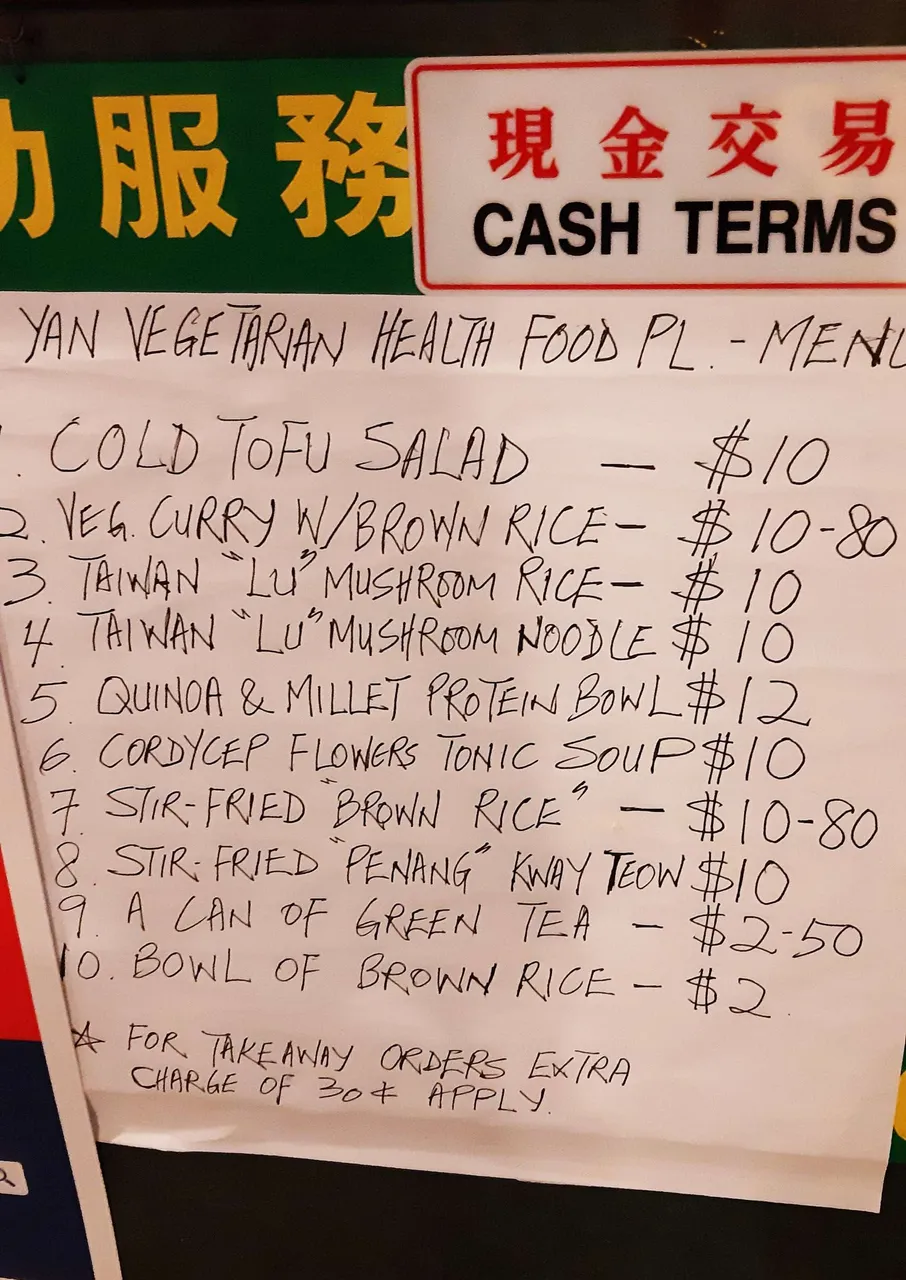 服務
現金交易
CASH TERMS
YAN VEGETARIAN HEALTH FOOD PL. - MENU
. COLD TOFU SALAD — $10
2. VEG. CURRY W/BROWN RICE — $10-80
3. TAIWAN "LU" MUSHROOM RICE — $10
4. TAIWAN "LU" MUSHROOM NOODLE $10
5. QUINOA & MILLET PROTEIN BOWL $12
6. CORDYCEP FLOWERS TONIC SOUP $10
7. STIR-FRIED "BROWN RICE" — $10-80
8. STIR-FRIED "PENANG" KWAY TEOW $10
9. A CAN OF GREEN TEA — $2-50
10. BOWL OF BROWN RICE — $2
☆ FOR TAKEAWAY ORDERS EXTRA
CHARGE OF 30¢ APPLY.